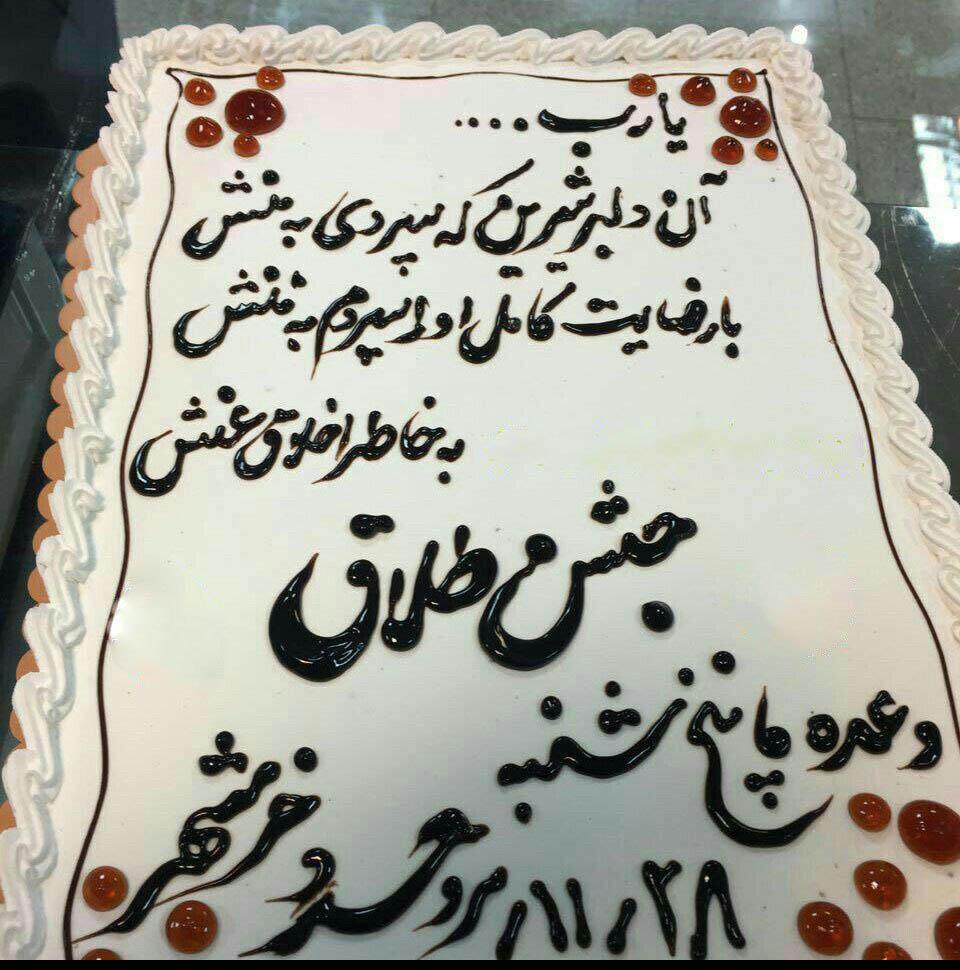 یا رب....
آن دلبر شیرین که سپردی به منش
با رضایت کامل او را سپردم به ننش
به خاطر اخلاق عنش
جشن طلاق
وعده پنج شنبه
۱۱/۲۸
خرمشهر